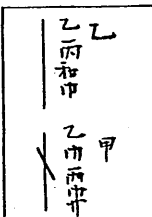 乙
乙丙和巾
甲
乙
丙